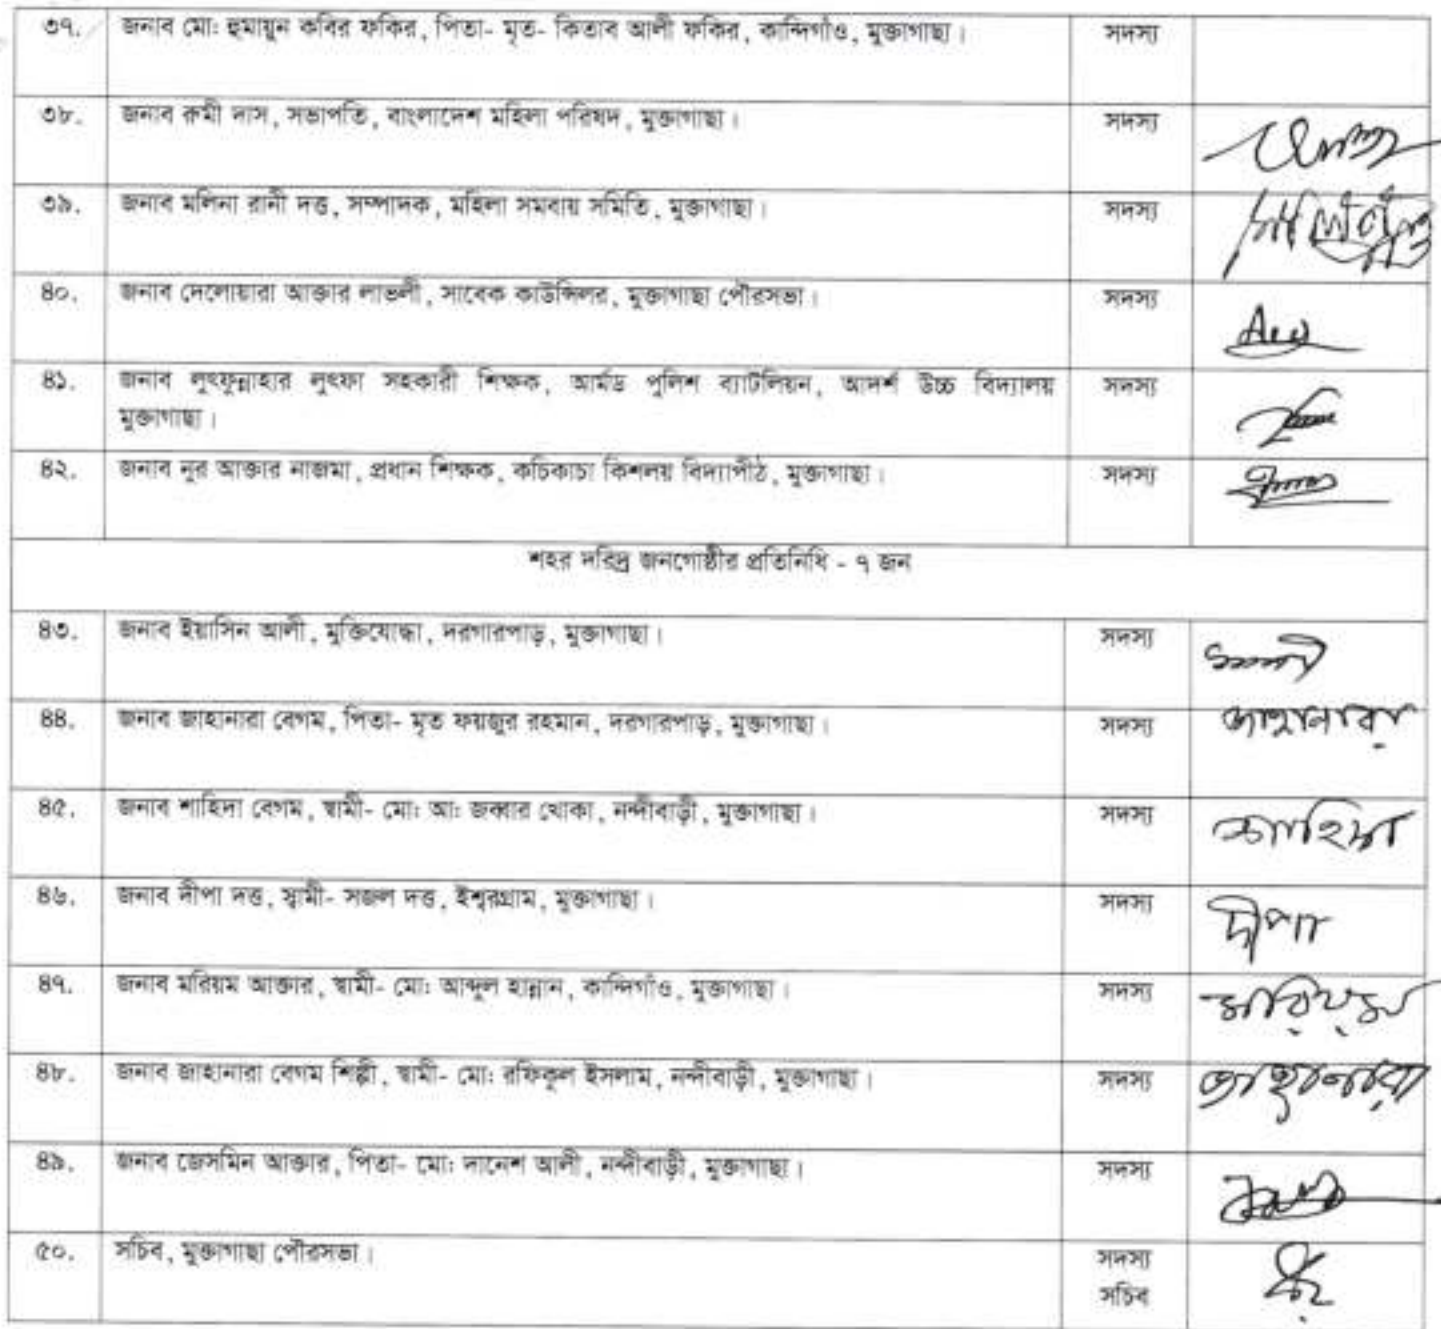 ৩৭. জনাব মো: হুমায়ুন কবির ফকির, পিতা- মৃত- কিতাব আলী ফকির, কান্দিগাঁও, মুক্তাগাছা। সদস্য
৩৮. জনাব রুমী দাস, সভাপতি, বাংলাদেশ মহিলা পরিষদ, মুক্তাগাছা। সদস্য
৩৯. জনাব মলিনা রানী দত্ত, সম্পাদক, মহিলা সমবায় সমিতি, মুক্তাগাছা। সদস্য
৪০. জনাব দেলোয়ারা আক্তার লাভলী, সাবেক কাউন্সিলর, মুক্তাগাছা পৌরসভা। সদস্য
৪১. জনাব লুৎফুন্নাহার লুৎফা সহকারী শিক্ষক, আর্মড পুলিশ ব্যাটলিয়ন, আদর্শ উচ্চ বিদ্যালয় সদস্য
মুক্তাগাছা।
৪২. জনাব নুর আক্তার নাজমা, প্রধান শিক্ষক, কচিকাচা কিশলয় বিদ্যাপীঠ, মুক্তাগাছা। সদস্য
শহর দরিদ্র জনগোষ্ঠীর প্রতিনিধি - ৭ জন
৪৩. জনাব ইয়াসিন আলী, মুক্তিযোদ্ধা, দরগারপাড়, মুক্তাগাছা। সদস্য
৪৪. জনাব জাহানারা বেগম, পিতা- মৃত ফয়জুর রহমান, দরগারপাড়, মুক্তাগাছা। সদস্য জাহানারা
৪৫. জনাব শাহিদা বেগম, স্বামী- মো: আ: জব্বার খোকা, নন্দীবাড়ী, মুক্তাগাছা। সদস্য শাহিদা
৪৬. জনাব দীপা দত্ত, স্বামী- সজল দত্ত, ইশ্বরগ্রাম, মুক্তাগাছা। সদস্য দীপা
৪৭. জনাব মরিয়ম আক্তার, স্বামী- মো: আব্দুল হান্নান, কান্দিগাঁও, মুক্তাগাছা। সদস্য মরিয়ম
৪৮. জনাব জাহানারা বেগম শিল্পী, স্বামী- মো: রফিকুল ইসলাম, নন্দীবাড়ী, মুক্তাগাছা। সদস্য জাহানারা
৪৯. জনাব জেসমিন আক্তার, পিতা- মো: দানেশ আলী, নন্দীবাড়ী, মুক্তাগাছা। সদস্য
৫০. সচিব, মুক্তাগাছা পৌরসভা। সদস্য
সচিব